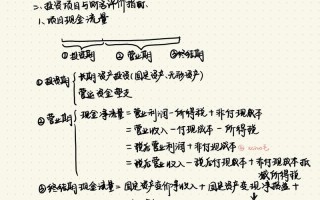 二、投资项目与财务评价指标.
1.项目现金流量
①投资期 ②营业期 ③终结期
①投资期 长期资产投资(固定资产、无形资产)
营运资金垫支
②营业期 现金净流量=营业利润-所得税+非付现成本
=营业收入-付现成本-所得税
=税后营业利润+非付现成本
=税后营业收入-税后付现成本+非付现成本抵
减所得税
③终结期现金流量=固定资产变价净收入+固定资产变现净损益+